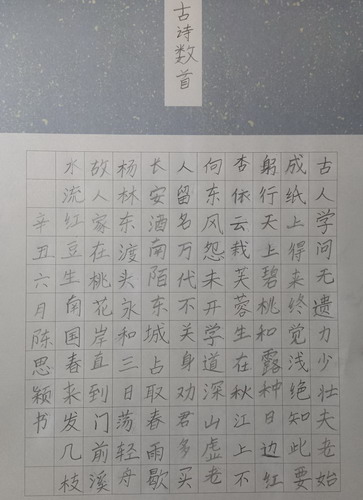 古诗数首
古人学问无遗力少壮夫老始
成纸上得来终觉浅绝知此要
躬行天上碧桃和露种日边红
杏依云栽芙蓉生在秋江上不
向东风怨未开学道深山虚老
人留名万代不关身劝君多买
长安酒南陌东城占取春雨歇
杨林东渡头永和三日荡轻舟
故人家在桃花岸直到门前溪
水流红豆生南国春来发几枝
辛丑六月陈思颖书